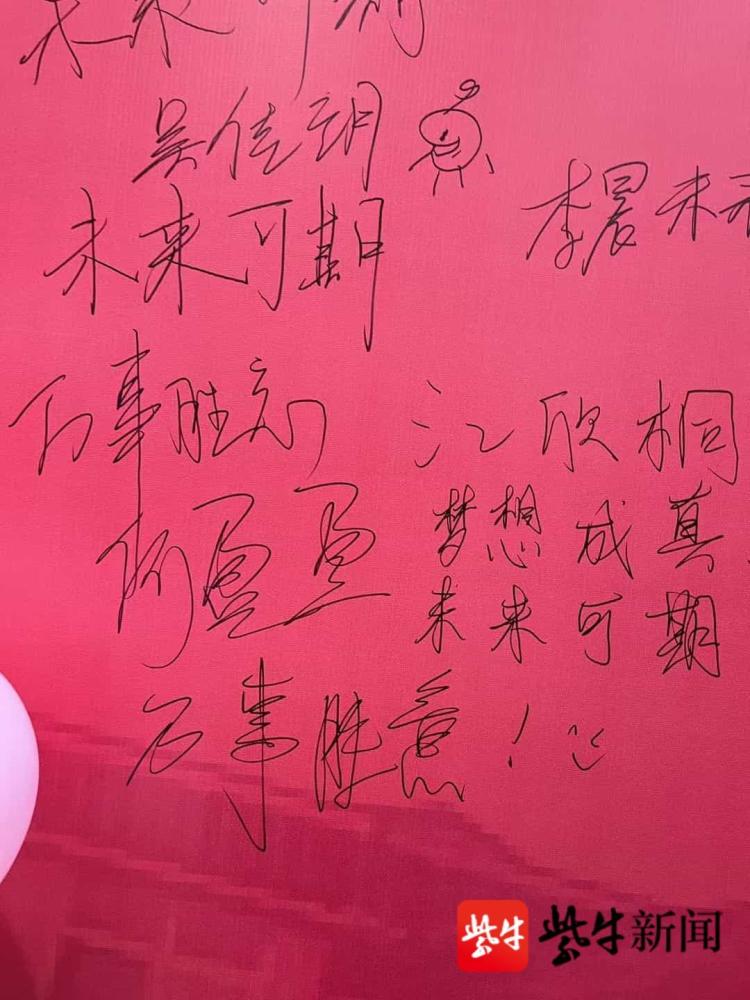 未来可期
吴佳玥
未来可期
李晨未来
万事胜意
江欣桐
何盈盈
梦想成真
未来可期
万事胜意!
紫牛 紫牛新闻